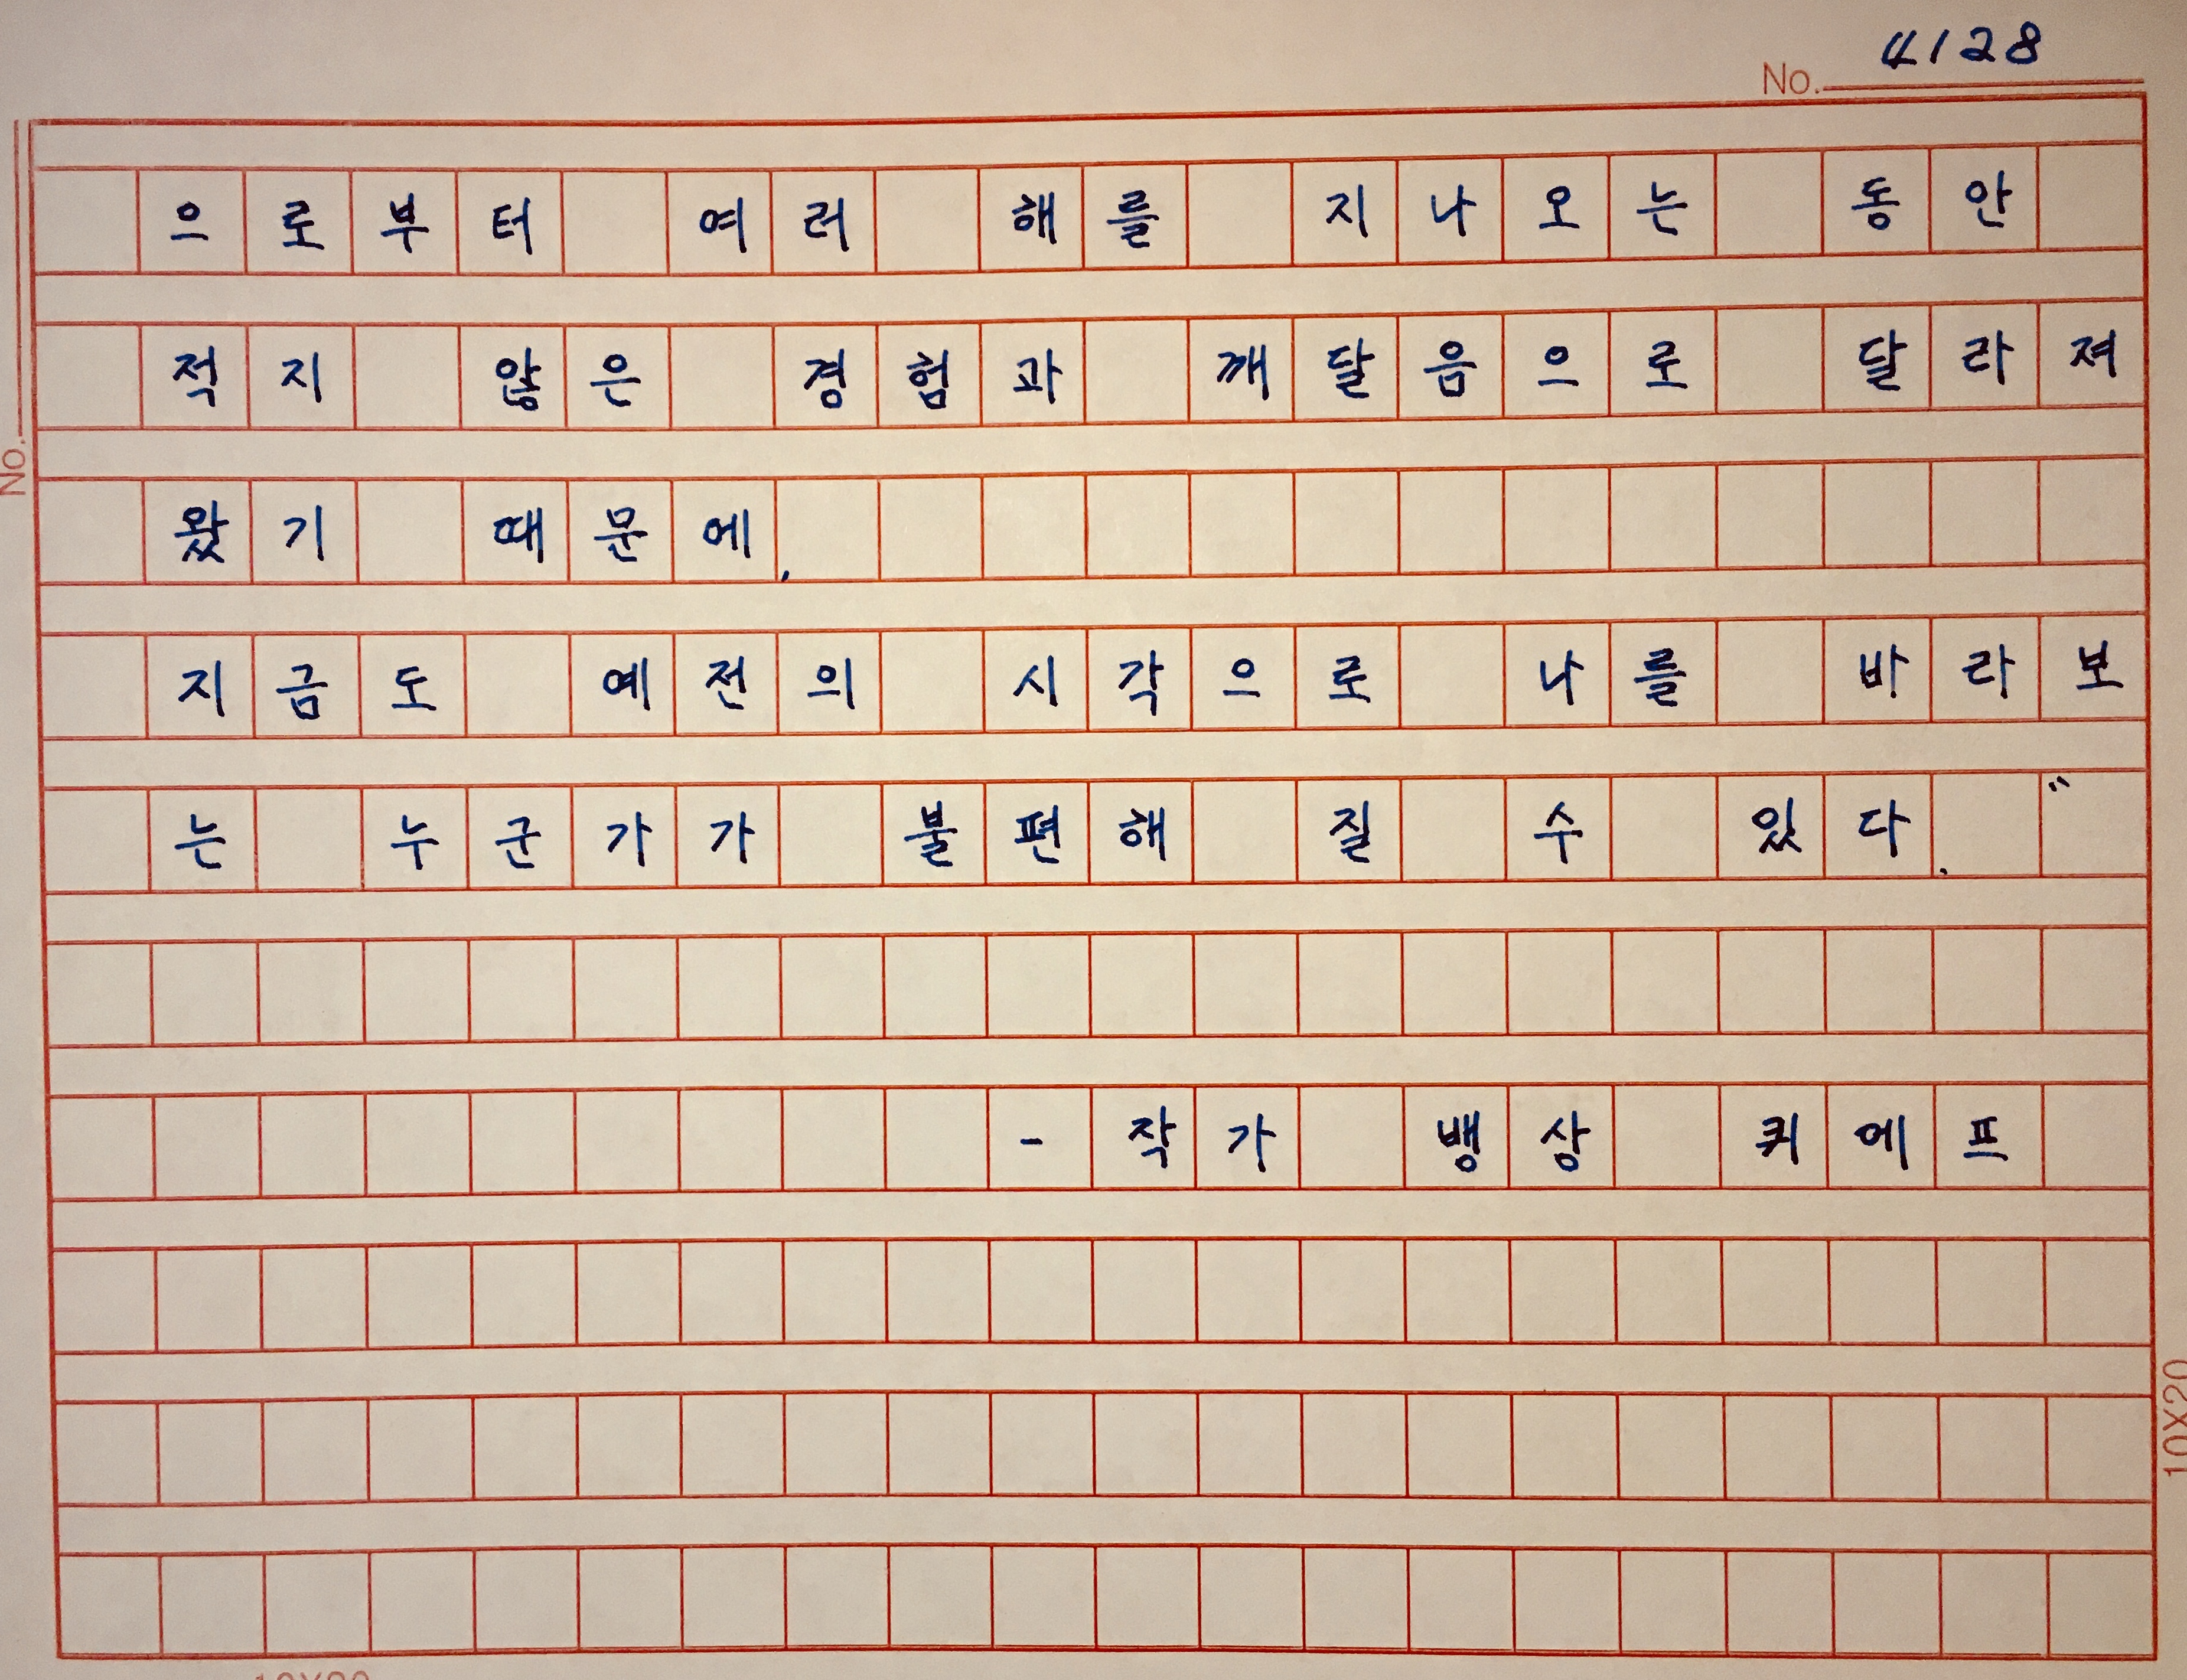 No. 4128
으로부터 여러 해를 지나오는 동안
적지 않은 경험과 깨달음으로 달라져
왔기 때문에,
No.
지금도 예전의 시각으로 나를 바라보
는 누군가가 불편해 질 수 있다."
- 작가 뱅상 퀴에프
10X20
10X20